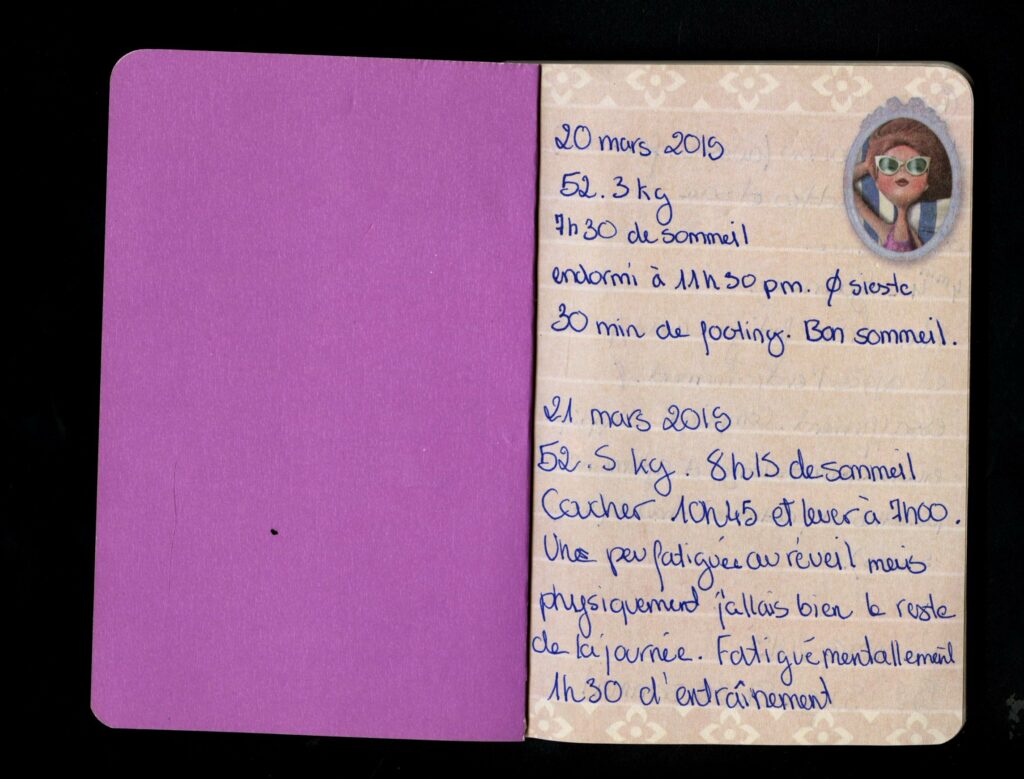 20 mars 2019
52.3 kg
7h30 de sommeil
endormi à 11h30 pm. ∅ sieste
30 min de footing. Bon sommeil.
21 mars 2019
52.5 kg. 8h15 de sommeil
Coucher 10h45 et lever à 7h00.
Une peu fatiguée au réveil mais
physiquement j'allais bien le reste
de la journée. Fatigué mentallement
1h30 d'entraînement